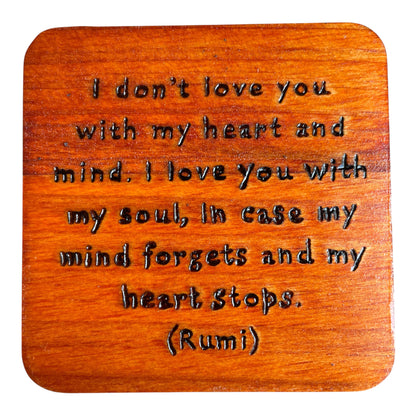 I don't love you
with my heart and
mind. I love you with
my soul, in case my
mind forgets and my
heart stops.
(Rumi)